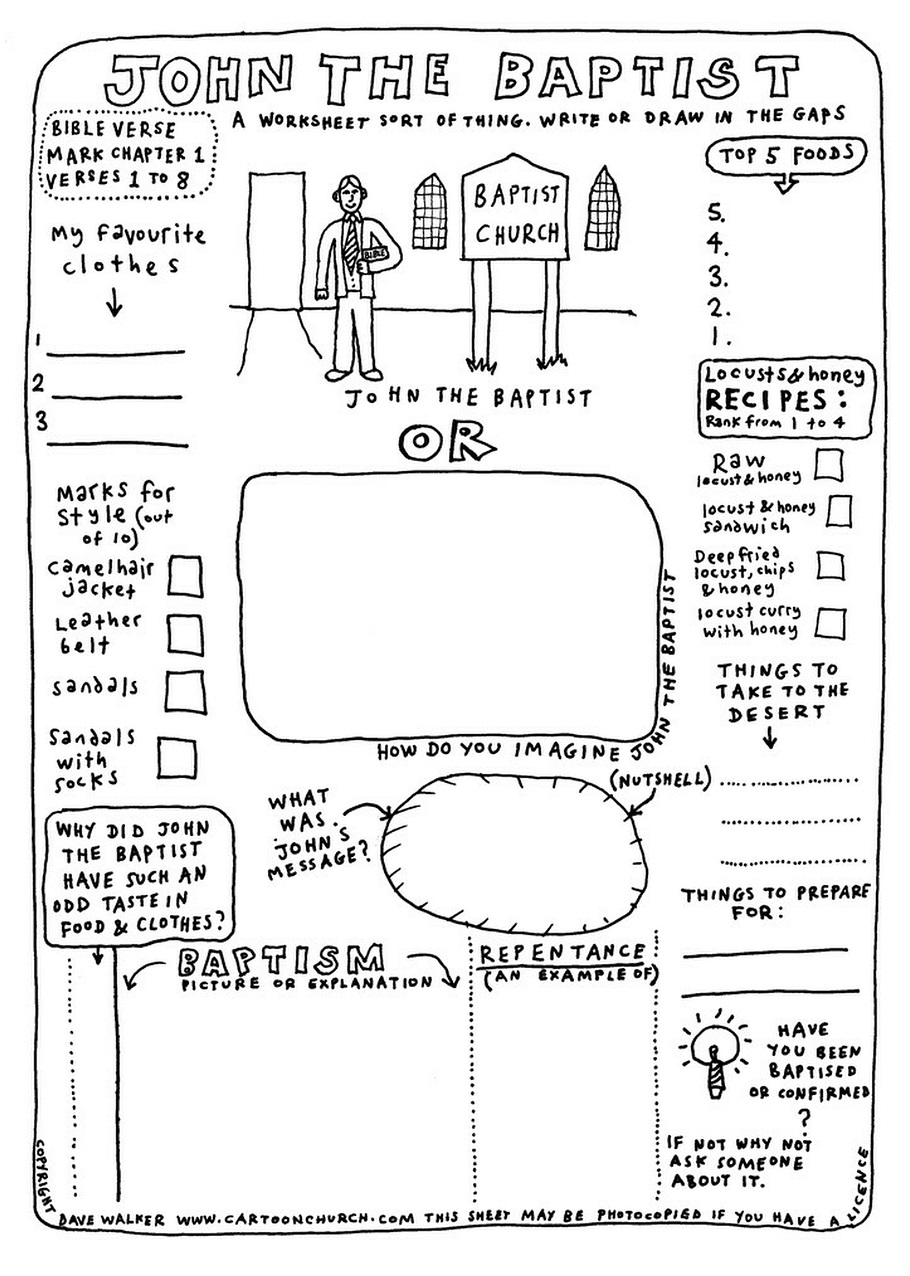 JOHN THE BAPTIST
A WORKSHEET SORT OF THING. WRITE OR DRAW IN THE GAPS
BIBLE VERSE
MARK CHAPTER 1
VERSES 1 TO 8
My favourite
clothes
1
2
3
Marks for
style (out
of 10)
Camelhair
jacket
Leather
belt
sandals
Sandals
with
socks
WHY DID JOHN
THE BAPTIST
HAVE SUCH AN
ODD TASTE IN
FOOD & CLOTHES?
BIBLE
BAPTIST
CHURCH
JOHN THE BAPTIST
OR
HOW DO YOU IMAGINE JOHN THE BAPTIST
WHAT
WAS
JOHN'S
MESSAGE?
(NUTSHELL)
BAPTISM
PICTURE OR EXPLANATION
REPENTANCE
(AN EXAMPLE OF)
TOP 5 FOODS
5.
4.
3.
2.
1.
Locusts & honey
RECIPES:
Rank from 1 to 4
Raw
locust & honey
locust & honey
sandwich
Deep fried
locust, chips
& honey
locust curry
with honey
THINGS TO
TAKE TO THE
DESERT
THINGS TO PREPARE
FOR:
HAVE
YOU BEEN
BAPTISED
OR CONFIRMED
?
IF NOT WHY NOT
ASK SOMEONE
ABOUT IT.
COPYRIGHT DAVE WALKER WWW.CARTOONCHURCH.COM THIS SHEET MAY BE PHOTOCOPIED IF YOU HAVE A LICENCE